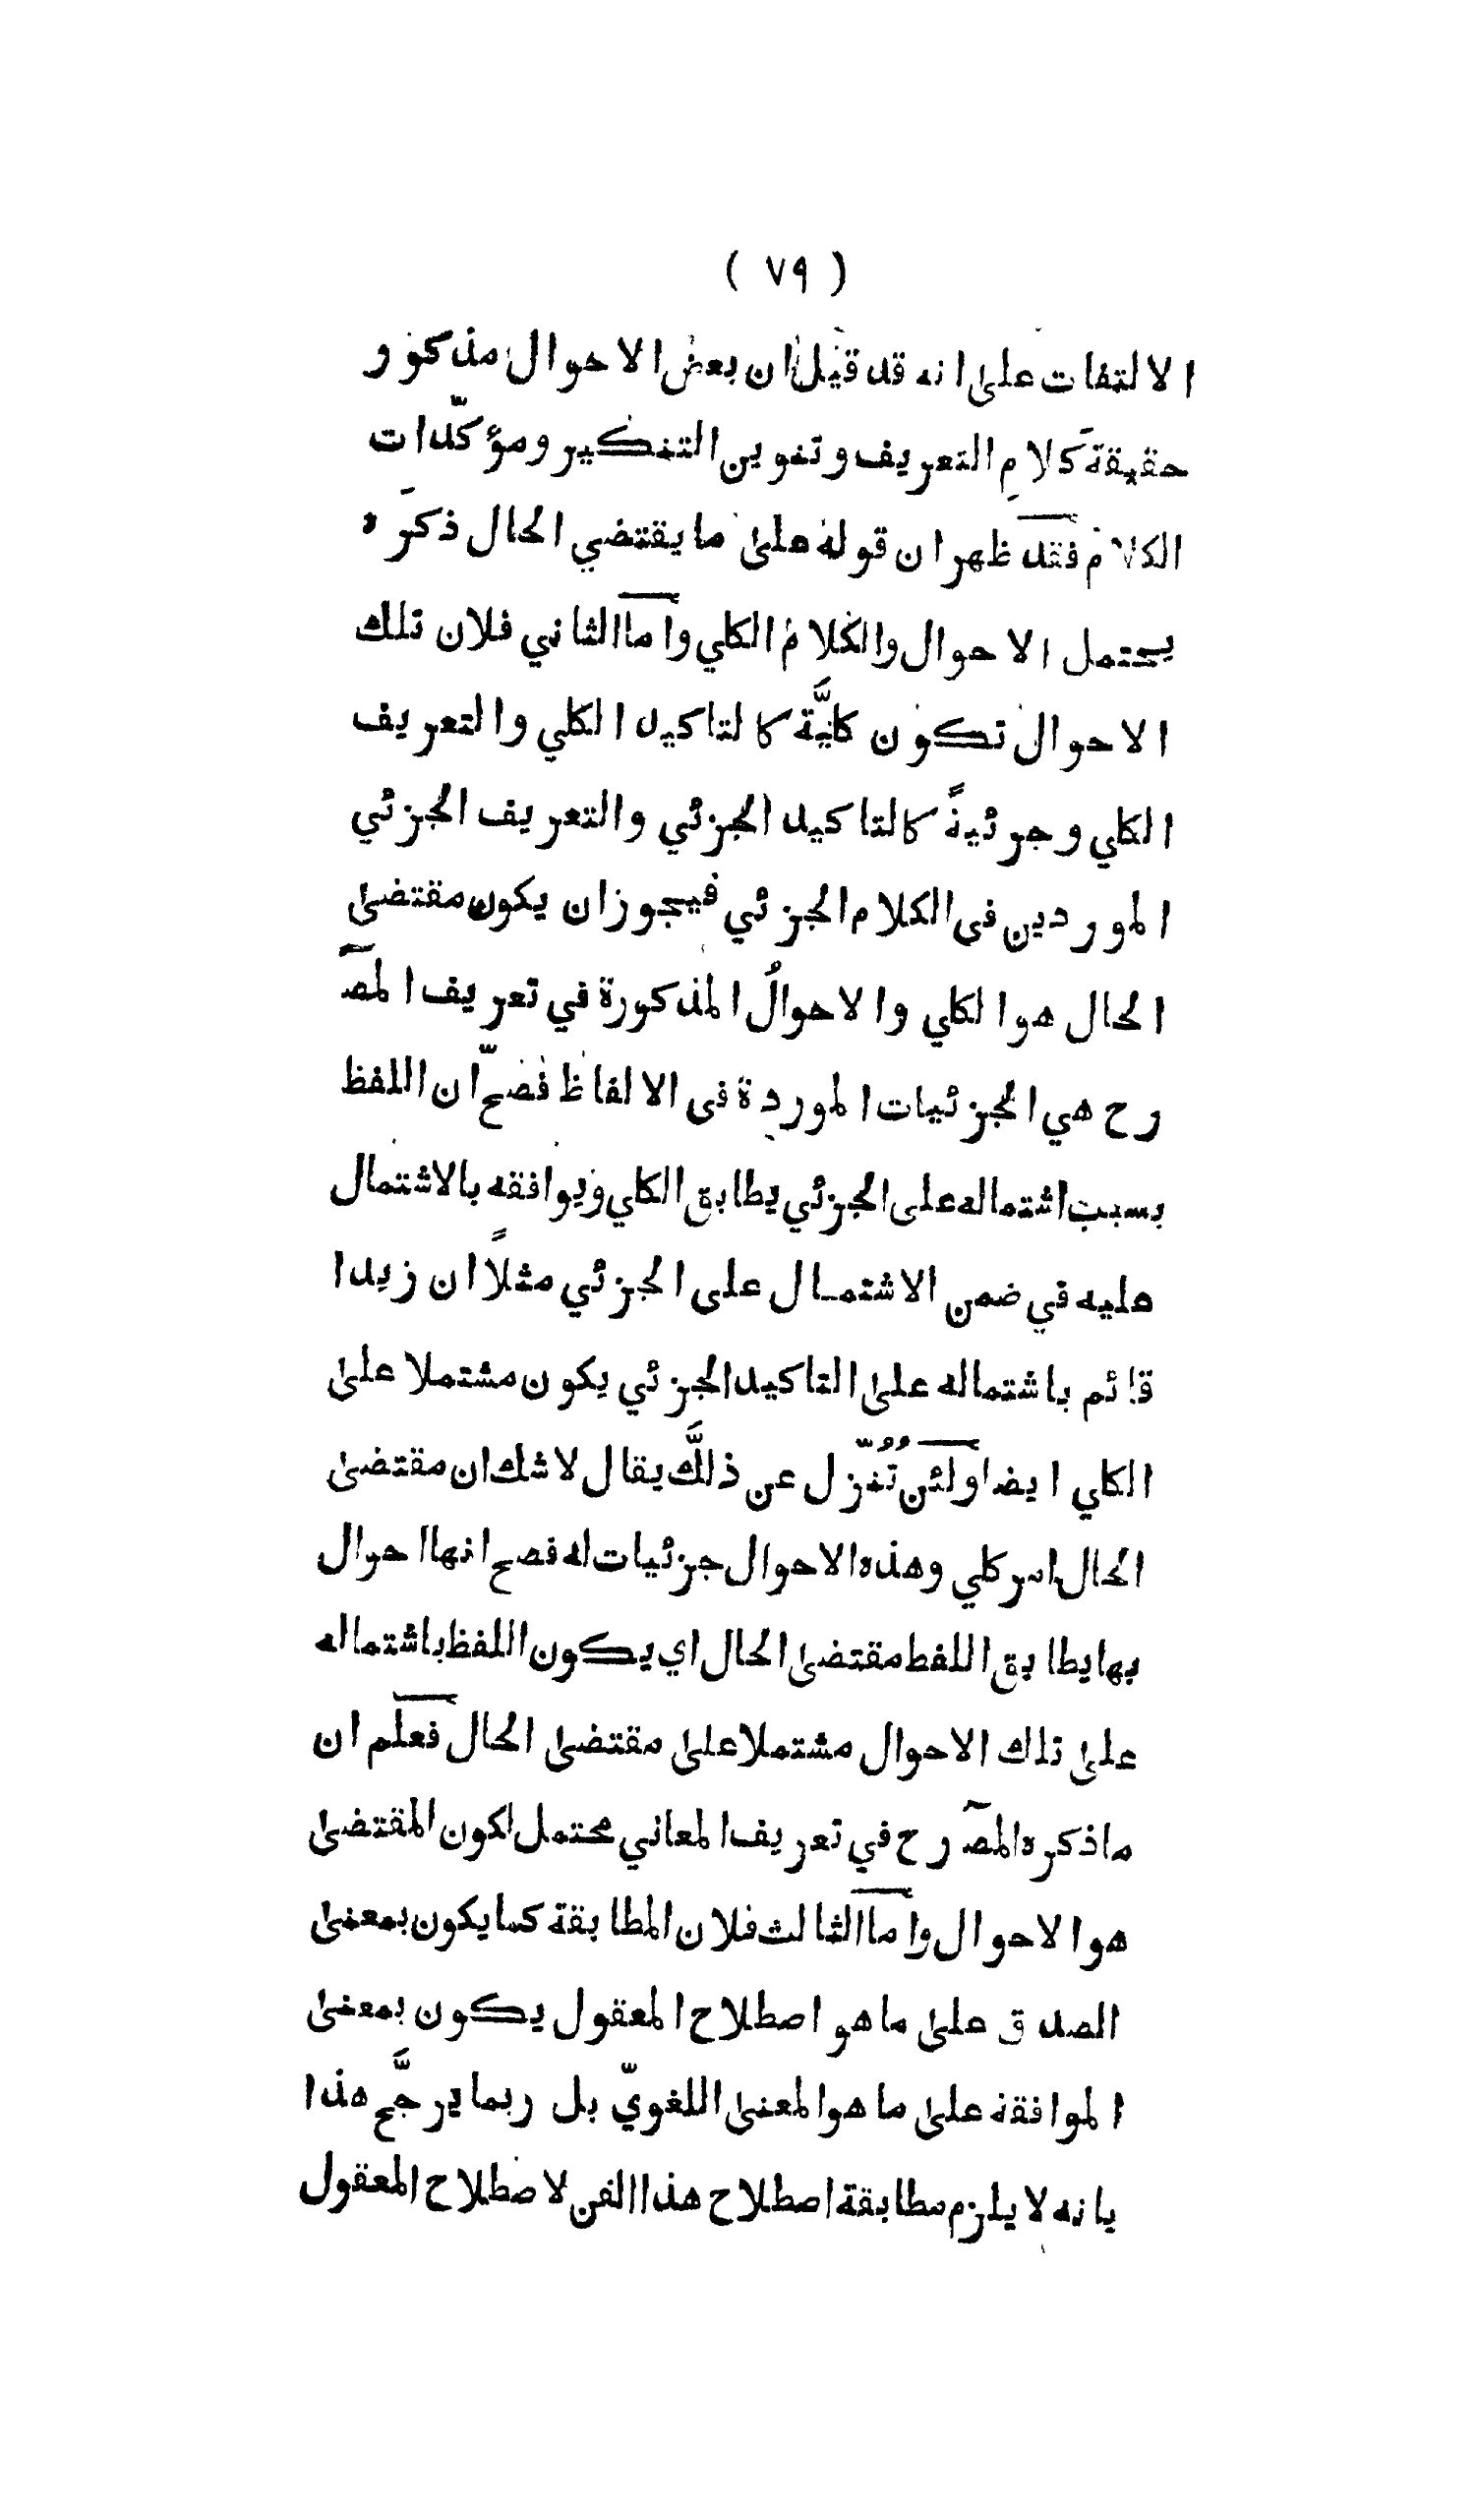 ( ٧٩ )
الالتفات على انه قد قيل ان بعض الاحوال مذكور
حقيقةً كلامِ التعريف وتنوين التنكير ومؤكّدات
الكلام فقد ظهر ان قوله على ما يقتضي الحال ذكرَه
يحتمل الاحوال والكلام الكلي واما الثاني فلان تلك
الاحوال تكون كليَّة كالتاكيد الكلي والتعريف
الكلي وجزئيةً كالتاكيد الجزئي والتعريف الجزئي
الموردين في الكلام الجزئي فيجوز ان يكون مقتضى
الحال هو الكلي والاحوالُ المذكورة في تعريف المصـ
رح هي الجزئيات الموردة في الالفاظ فصحّ ان اللفظ
بسبب اشتماله على الجزئي يطابق الكلي ويوافقه بالاشتمال
عليه في ضمن الاشتمال على الجزئي مثلاً ان زيدا
قائم باشتماله على التاكيد الجزئي يكون مشتملا على
الكلي ايضا ولئن تُنُزّل عن ذلكَّ يقال لا شك ان مقتضى
الحال امر كلي وهذه الاحوال جزئيات له فصح انها احوال
بها يطابق اللفظ مقتضى الحال اي يكون اللفظ باشتماله
على تلك الاحوال مشتملا على مقتضى الحال فعلم ان
ما ذكره المصـ رح في تعريف المعاني محتمل لكون المقتضى
هو الاحوال واما الثالث فلان المطابقة كما يكون بمعنى
الصدق على ما هو اصطلاح المعقول يكون بمعنى
الموافقة على ما هو المعنى اللغويّ بل ربما يرجَّح هذا
بانه لا يلزم مطابقة اصطلاح هذا الفن لاصطلاح المعقول